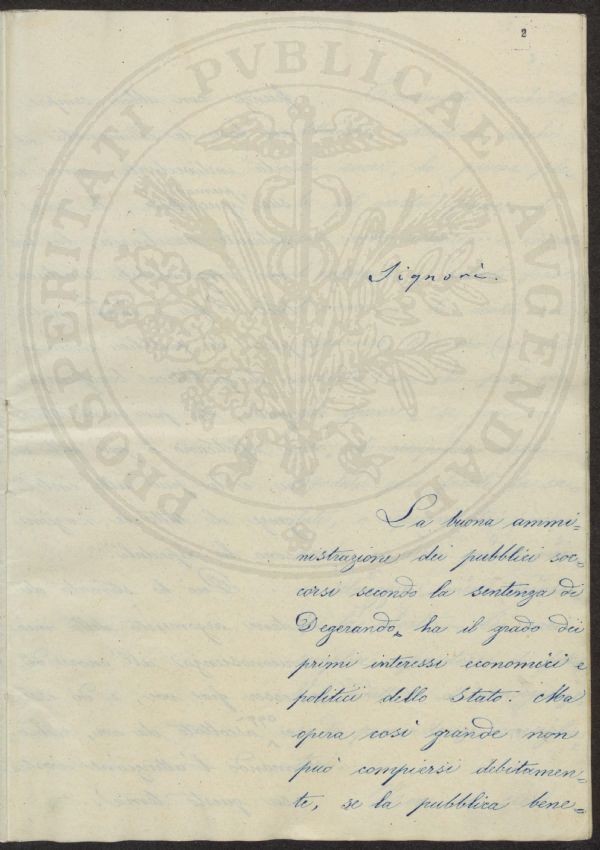 2
PROSPERITATI PVBLICAE AVGENDAE
Signori.
La buona ammi=
nistrazione dei pubblici soc=
corsi secondo la sentenza di
Degerando, ha il grado dei
primi interessi economici e
politici dello Stato. Ma
opera così grande non
può compiersi debitamen=
te, se la pubblica bene=